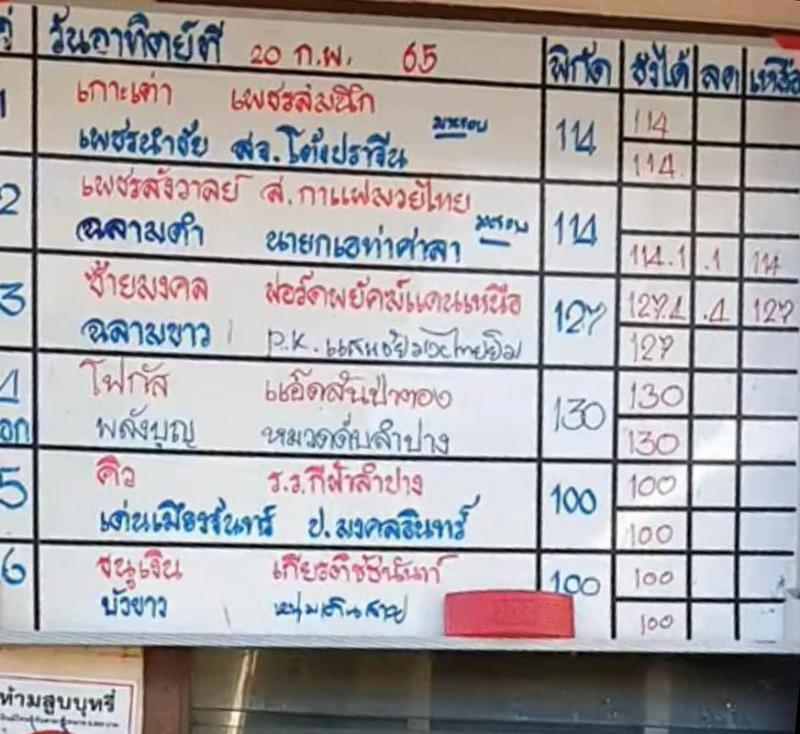 คู่ วันอาทิตย์ที่ 20 ก.พ. 65 พิกัด ชั่งได้ ลด เหลือ
1 เกาะเต่า เพชรสมนึก 114 114
เพชรนำชัย สจ.โต้งปราจีน 114
2 เพชรสังวาลย์ ส.กาแฟมวยไทย 114
ฉลามดำ นายกเอท่าศาลา 114.1 .1 114
3 ซ้ายมงคล ฟอร์ดพยัคฆ์แดนเหนือ 127 127.4 .4 127
ฉลามขาว P.K. 127
4 โฟกัส แอ๊ดสันป่าตอง 130 130
เอก พลังบุญ หมวดดับลำปาง 130
5 คิว ร.ร.กีฬาลำปาง 100 100
เด่นเมืองจันทร์ ป.มงคลอินทร์ 100
6 ธนูเงิน เกียรติชัชนันท์ 100 100
บัวขาว 100
ห้ามสูบบุหรี่